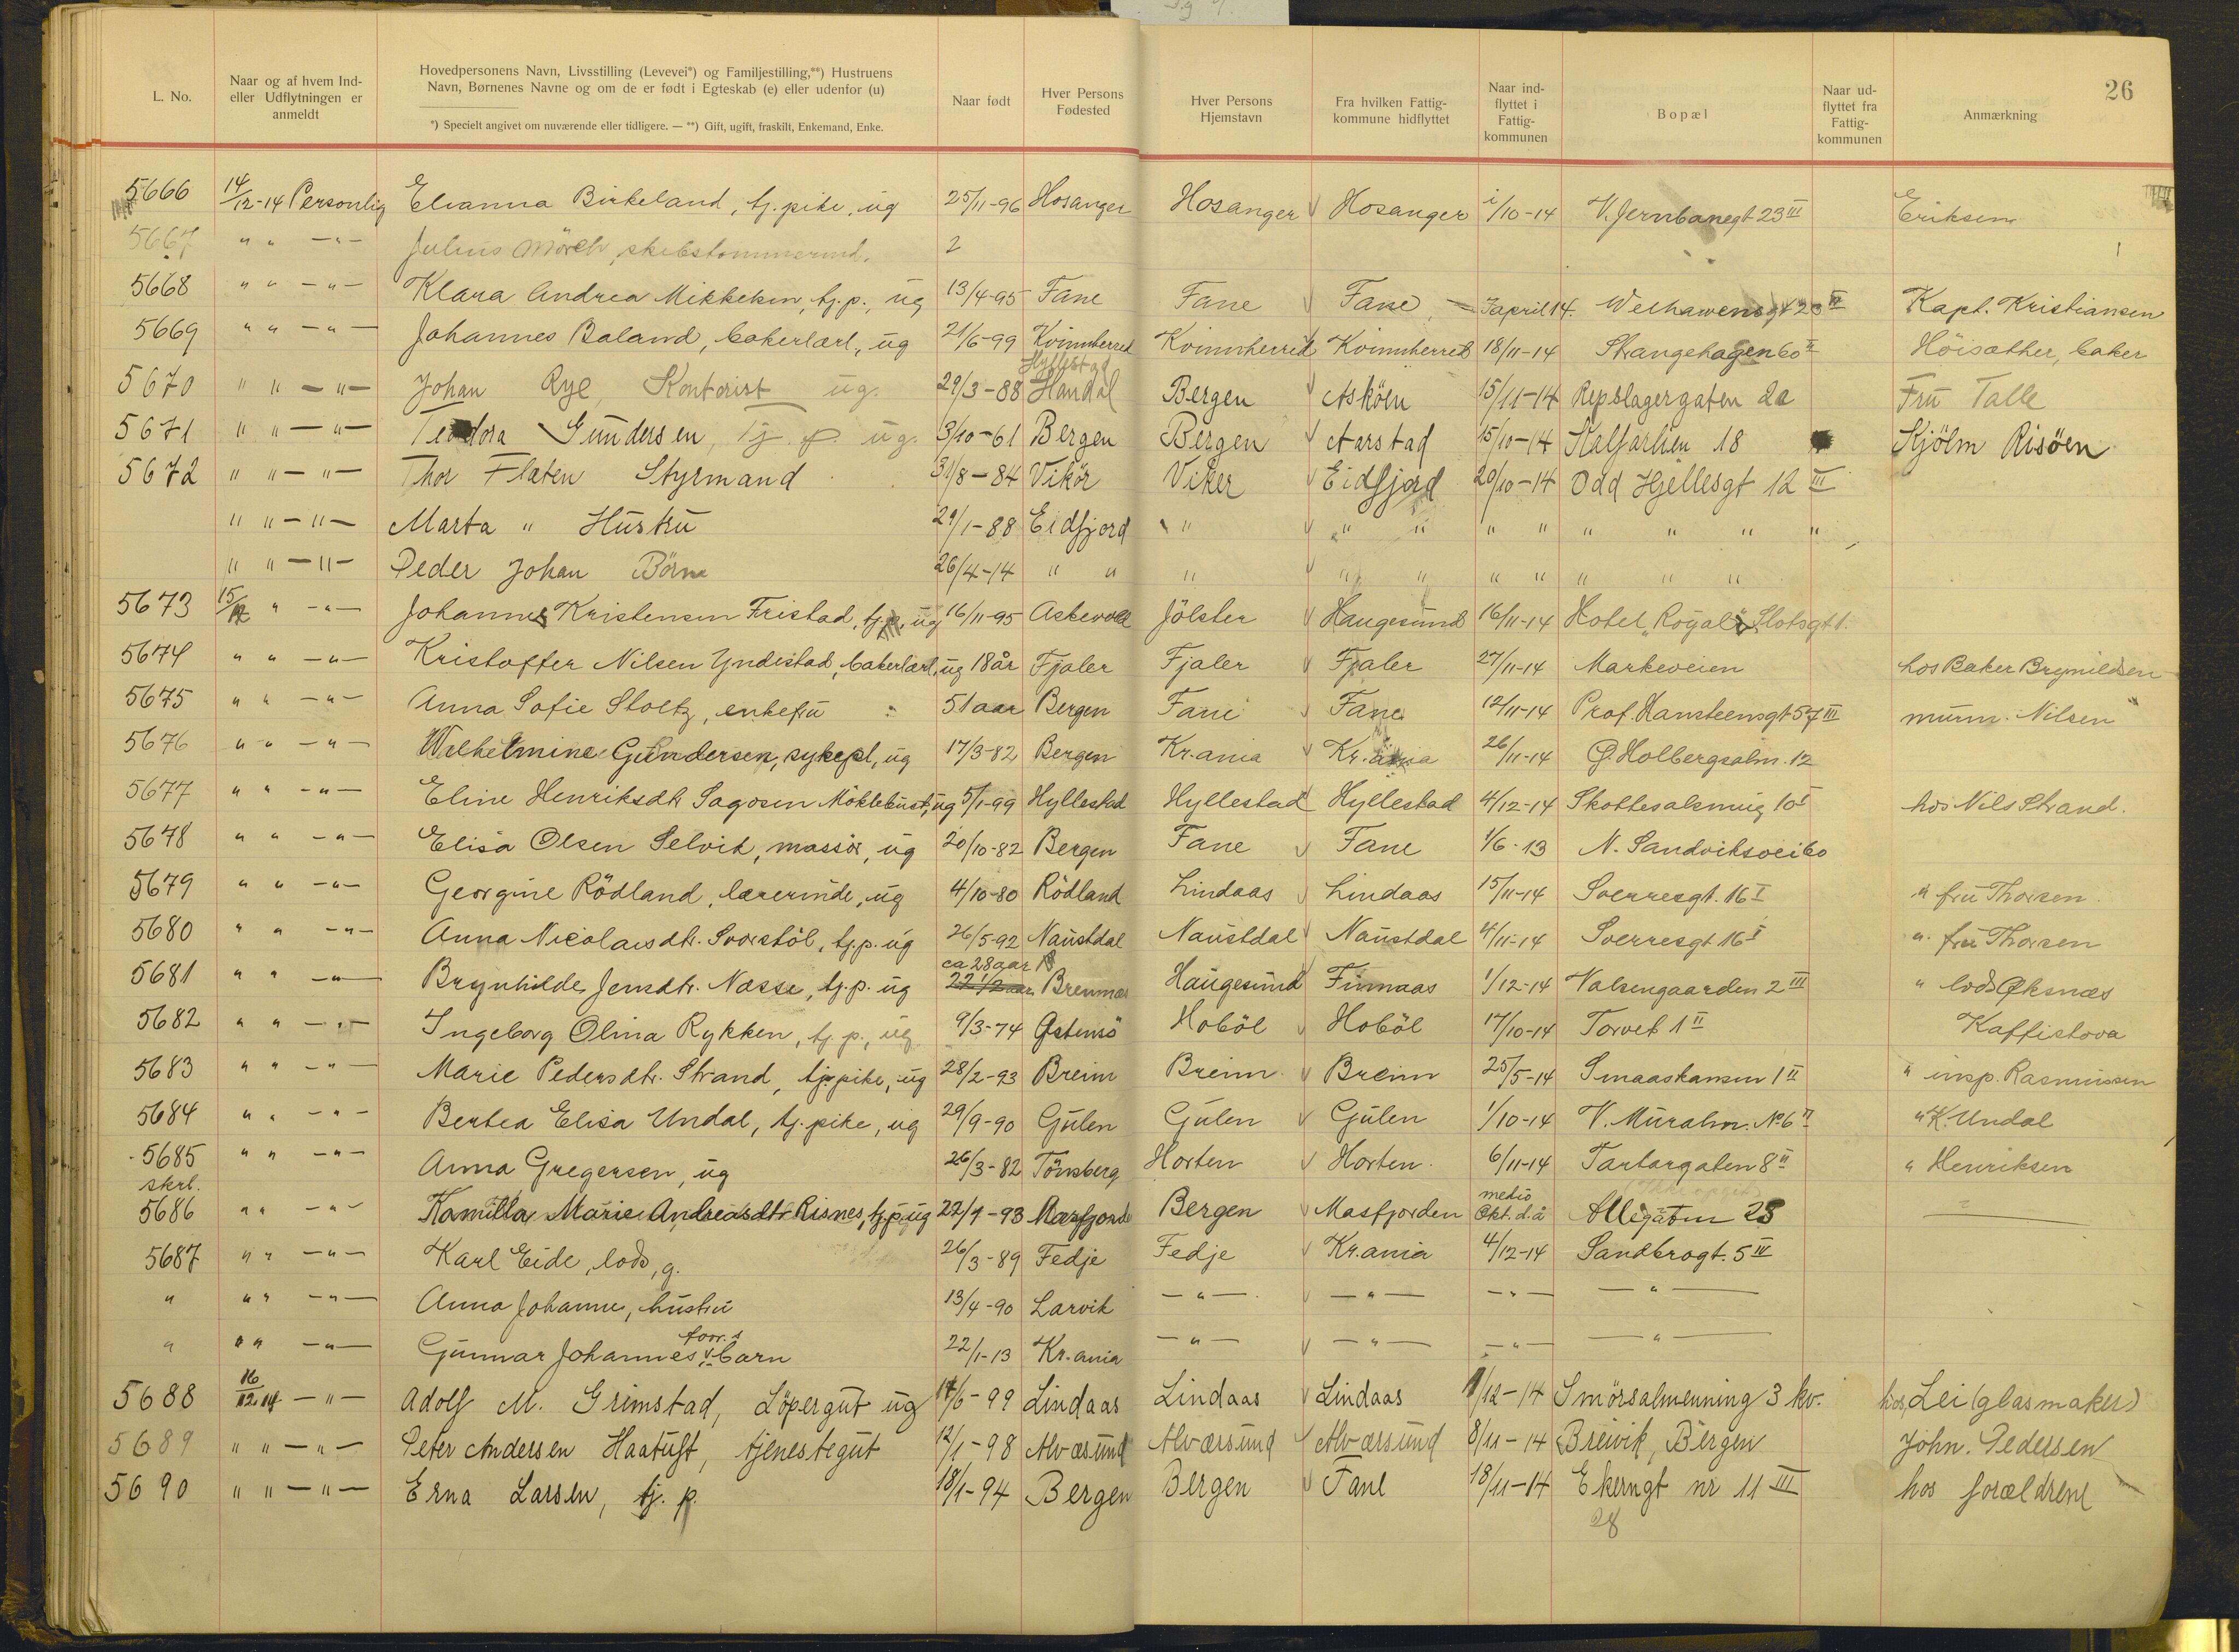 26
L. No.
Naar og af hvem Ind- eller Udflytningen er anmeldt
Hovedpersonens Navn, Livsstilling (Levevei*) og Familjestilling,**) Hustruens Navn, Børnenes Navne og om de er født i Egteskab (e) eller udenfor (u)
*) Specielt angivet om nuværende eller tidligere. — **) Gift, ugift, fraskilt, Enkemand, Enke.
Naar født
Hver Persons Fødested
Hver Persons Hjemstavn
Fra hvilken Fattig- kommune hidflyttet
Naar ind- flyttet i Fattig- kommunen
Bopæl
Naar ud- flyttet fra Fattig- kommunen
Anmærkning
5666 14/12-14 Personlig Elianna Birkeland, tj.pike, ug 25/11-96 Hosanger Hosanger Hosanger 1/10-14 V. Jernbanegt 23 III Eriksen
5667 " " -"- Julius Mörch, skibstømmermd. 2
5668 " " -"- Klara Andrea Mikkelsen, tj.p., ug 13/4-95 Fane Fane Fane 3 april 14. Welhavensgt 23 II Kapt. Kristiansen
5669 " " -"- Johannes Baland, bakerlærl., ug 21/6-99 Kvinnherred Kvinnherred Kvinnherred 18/11-14 Strangehagen 60 II Höisæther, baker
5670 " " -"- Johan Rye, Kontorist ug. 29/3-88 Hyllestad Bergen Asköen 15/11-14 Repslagergaten 2a Fru Talle
5671 " " -"- Teodora Gundersen, Tj. p. ug. 3/10-61 Bergen Bergen Aarstad 15/10-14 Kalfarlien 18 Kjölm Risöen
5672 " " -"- Thor Flaten Styrmand 31/8-84 Vikör Viker Eidfjord 20/10-14 Odd Hjellesgt 12 III
" " -"- Marta " Hustru 29/1-88 Eidfjord " " " " " " " " "
" " -"- Peder Johan Börn 26/4-14 " " " " " " " " " "
5673 15/12 " -"- Johannes Kristensen Fristad, ug 16/11-95 Askevold Jölster Haugesund 16/11-14 Hotel "Royal" Slotsgt 1.
5674 " " -"- Kristoffer Nilsen Yndestad, bakerlærl, ug 18 år Fjaler Fjaler Fjaler 27/11-14 Markeveien hos Baker Brynildsen
5675 " " -"- Anna Sofie Stoltz, enkefru 51 aar Bergen Fane Fane 12/11-14 Prof. Hansteensgt 57 III murm. Nilsen
5676 " " -"- Wilhelmine Gundersen, sykepl, ug 17/3-82 Bergen Kr.ania Kr.ania 26/11-14 G. Holbergsalm. 12
5677 " " -"- Eline Henriksdtr Sagosen Möklebust, ug 5/1-99 Hyllestad Hyllestad Hyllestad 4/12-14 Skottesalsmug 10 I hos Nils Strand.
5678 " " -"- Elisa Olsen Selvik, massör, ug 20/10-82 Bergen Fane Fane 1/6-13 N. Sandviksvei 60
5679 " " -"- Georgine Rödland, lærerinde, ug 4/10-80 Rödland Lindaas Lindaas 15/11-14 Sverresgt. 16 I " fru Thorsen.
5680 " " -"- Anna Nicolaisdtr. Svorstöl, tj.p. ug 26/5-92 Naustdal Naustdal Naustdal 4/11-14 Sverresgt 16 I " fru Thorsen
5681 " " -"- Brynhilde Jensdtr. Næsse, tj.p. ug ca 28 aar 22 1/2 aar Bremnes Haugesund Finnaas 1/12-14 Valsengaarden 2 III " lods Øksnæs
5682 " " -"- Ingeborg Olina Rykken, tj.p., ug 9/3-74 Østensö Hoböl Hoböl 17/10-14 Torvet 1 II Kaffistova
5683 " " -"- Marie Pedersdtr. Strand, tj.pike, ug 28/2-93 Breim Breim Breim 25/5-14 Smaaskansen 1 II " insp. Rasmussen
5684 " " -"- Bertea Elisa Undal, tj.pike, ug 29/9-90 Gulen Gulen Gulen 1/10-14 V. Muralm. No 6 II " K. Undal
5685 " " -"- Anna Gregersen, ug 26/3-82 Tönsberg Horten Horten 6/11-14 Tartargaten 8 II " Henriksen
skrl.
5686 " " -"- Kamilla Marie Andreasdtr Risnes, tj.p. ug 22/9-93 Masfjorden Bergen Masfjorden medio Okt. d.å Allégaten 23
5687 " " -"- Karl Eide, lods, g. 26/3-89 Fedje Fedje Kr.ania 4/12-14 Sandbrogt. 5 III
" " " -"- Anna Johanne, hustru 13/4-90 Larvik -"- -"- -"- -"-
" " " -"- Gunnar Johannes, barn 22/1-13 Kr.ania -"- -"- -"- -"-
5688 16/12.14 -"- Adolf M. Grimstad, Löpergut ug 14/6-99 Lindaas Lindaas Lindaas 1/12-14 Smörsalmenning 3 kv. hos Lei (glasmaker)
5689 " " -"- Peter Andersen Haatuft, tjenestegut 12/1-98 Alværsund Alværsund Alværsund 8/11-14 Breivik, Bergen John. Pedersen
5690 " " -"- Erna Larsen, tj. p. 18/1-94 Bergen Bergen Fane 18/11-14 Ekerngt nr 11 III hos forældrene
28